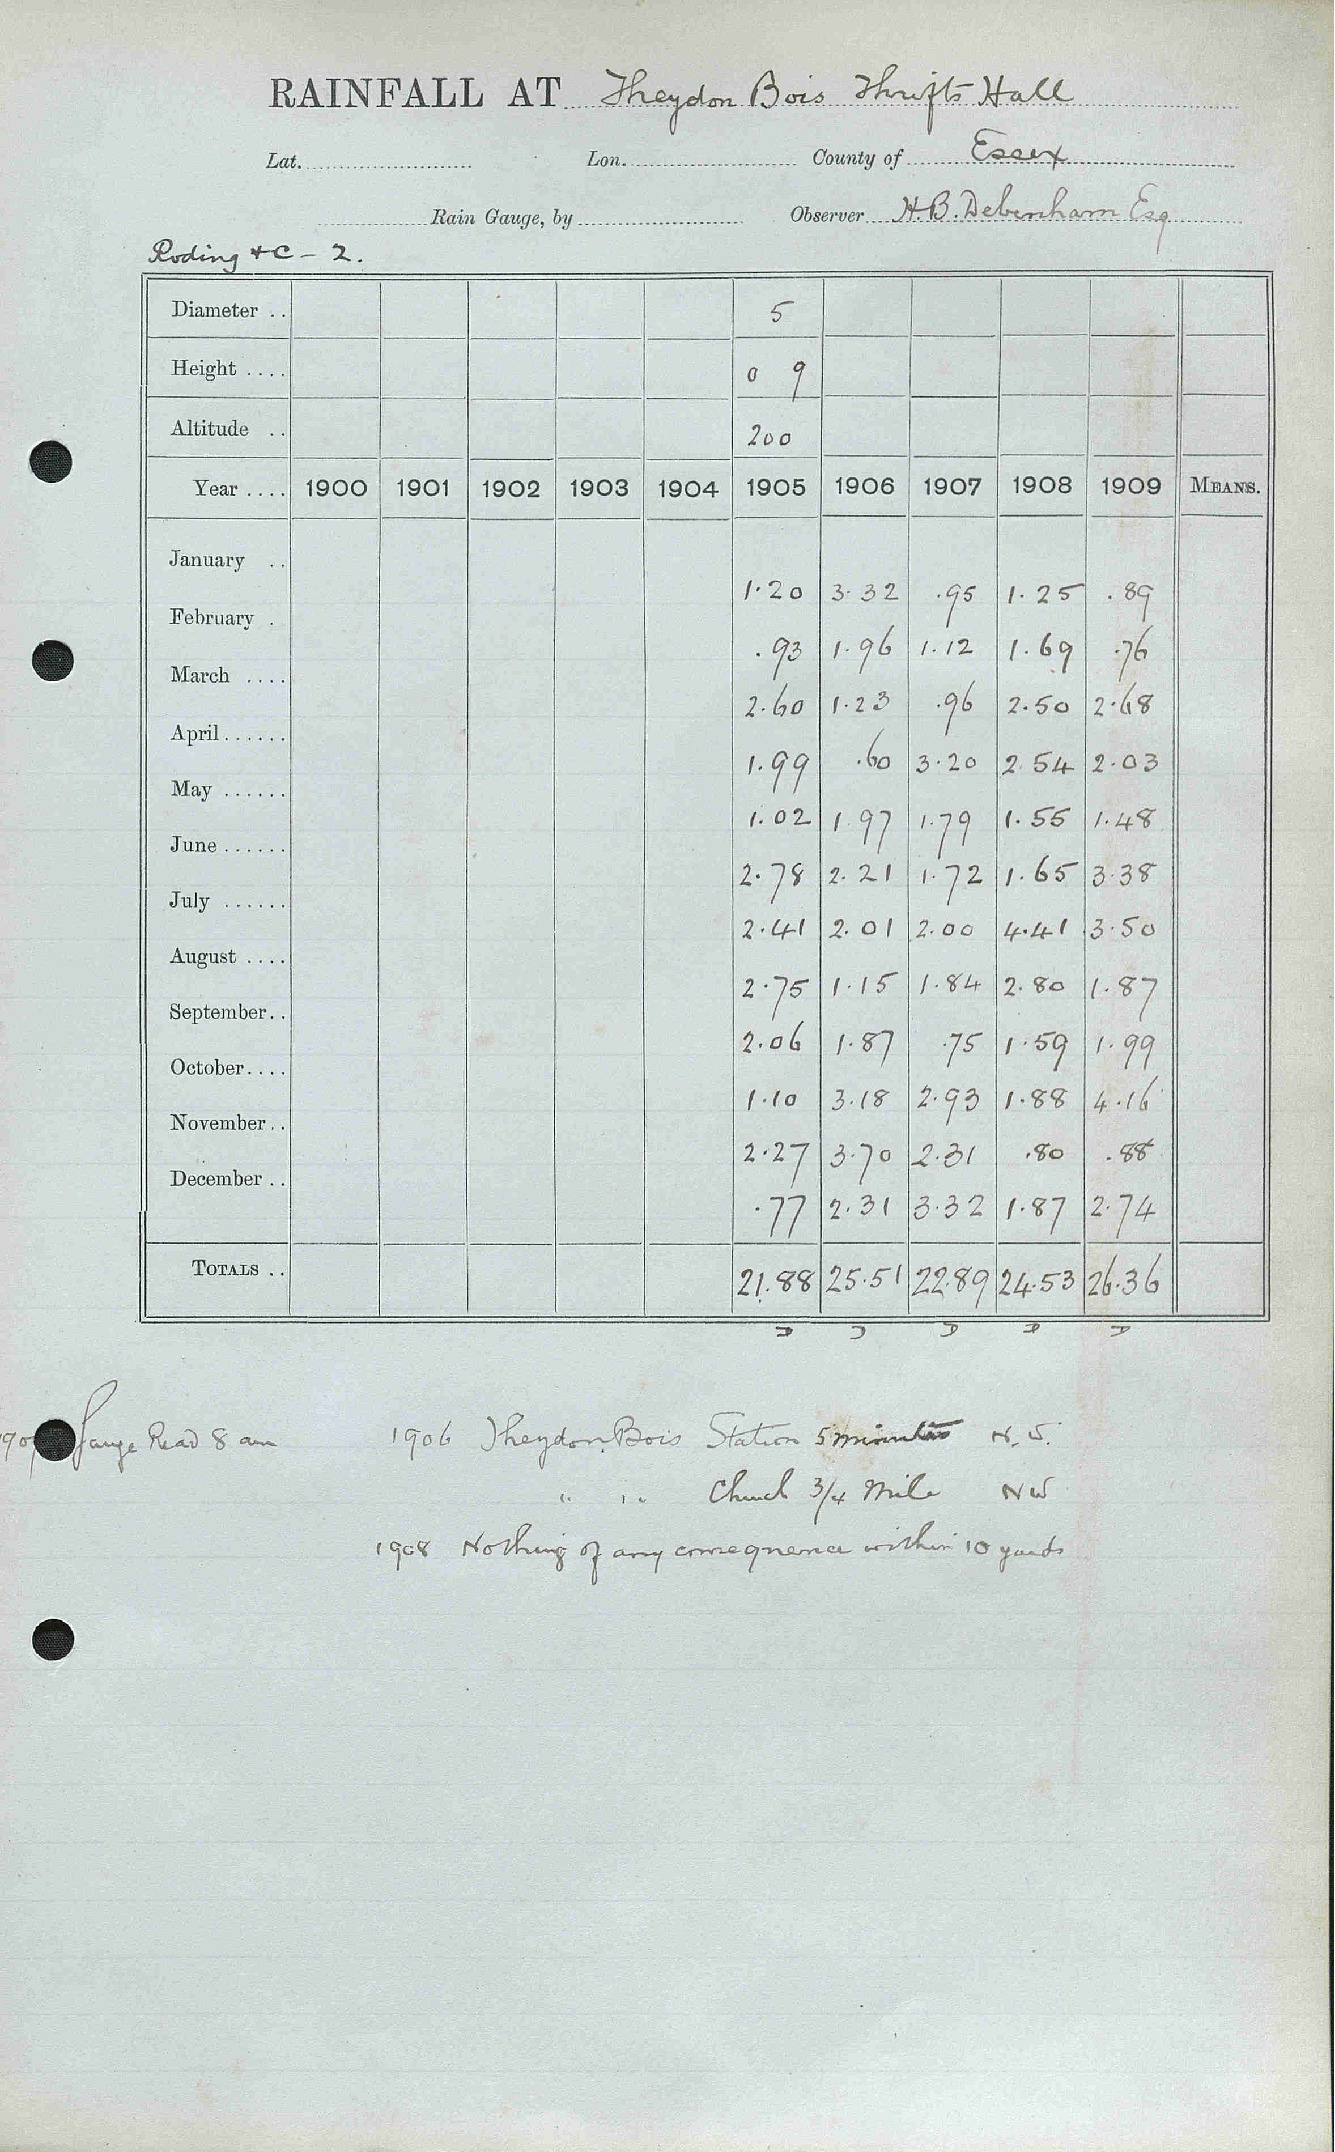 RAINFALL AT Theydon Bois Thrifts Hall
Lat. Lon. County of Essex
Rain Gauge, by Observer H.B. Debenham Esq
Roding &c - 2.
Diameter .. 5
Height .... 0 9
Altitude .. 200
Year .... 1900 1901 1902 1903 1904 1905 1906 1907 1908 1909 MEANS.
January .. 1.20 3.32 .95 1.25 .89
February . .93 1.96 1.12 1.69 .76
March .... 2.60 1.23 .96 2.50 2.68
April ...... 1.99 .60 3.20 2.54 2.03
May ...... 1.02 1.97 1.79 1.55 1.48
June ...... 2.78 2.21 1.72 1.65 3.38
July ...... 2.41 2.01 2.00 4.41 3.50
August .... 2.75 1.15 1.84 2.80 1.87
September.. 2.06 1.87 .75 1.59 1.99
October.... 1.10 3.18 2.93 1.88 4.16
November.. 2.27 3.70 2.31 .80 .88
December .. .77 2.31 3.32 1.87 2.74
TOTALS .. 21.88 25.51 22.89 24.53 26.36
Gauge Read 8 am 1906 Theydon Bois Station 5 minutes N.W.
" " " Church 3/4 Mile NW
1908 Nothing of any consequence within 10 yards